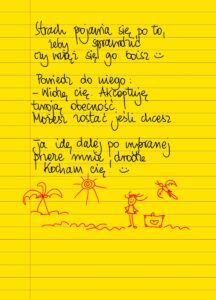 Strach pojawia się po to,
żeby sprawdzić
czy wciąż się go boisz
Powiedz do niego:
- Widzę cię. Akceptuję
twoją obecność.
Możesz zostać jeśli chcesz
- ja idę dalej po wybranej
przeze mnie drodze
Kocham cię!